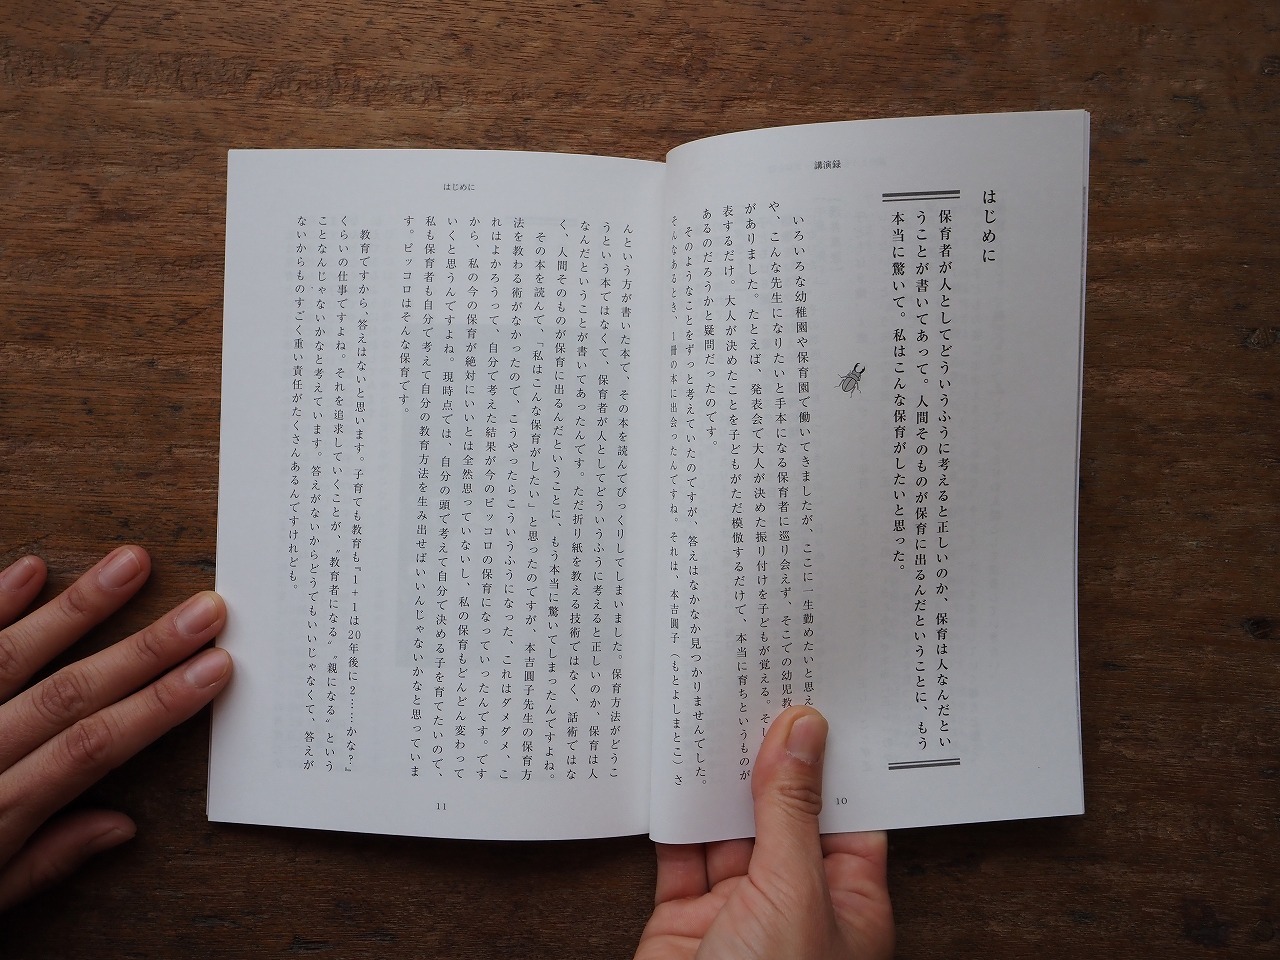 講演録
はじめに
保育者が人としてどういうふうに考えると正しいのか、保育は人なんだとい
うことが書いてあって。人間そのものが保育に出るんだということに、もう
本当に驚いて。私はこんな保育がしたいと思った。
いろいろな幼稚園や保育園で働いてきましたが、ここに一生勤めたいと思え
や、こんな先生になりたいと手本になる保育者に巡り会えず、そこでの幼児教
がありました。たとえば、発表会で大人が決めた振り付けを子どもが覚える。そし
表するだけ。大人が決めたことを子どもがただ模倣するだけで、本当に育ちというものが
あるのだろうかと疑問だったのです。
そのようなことをずっと考えていたのですが、答えはなかなか見つかりませんでした。
そんなあるとき、1冊の本に出会ったんですね。それは、本吉圓子（もとよしまとこ）さ
10
はじめに
んという方が書いた本で、その本を読んでびっくりしてしまいました。保育方法がどうこ
うという本ではなくて、保育者が人としてどういうふうに考えると正しいのか、保育は人
なんだということが書いてあったんです。ただ折り紙を教える技術ではなく、話術ではな
く、人間そのものが保育に出るんだということに、もう本当に驚いてしまったんですよね。
その本を読んで、「私はこんな保育がしたい」と思ったのですが、本吉圓子先生の保育方
法を教わる術がなかったので、こうやったらこういうふうになった、これはダメダメ、こ
れはよかろうって、自分で考えた結果が今のピッコロの保育になっていったんです。です
から、私の今の保育が絶対にいいとは全然思っていないし、私の保育もどんどん変わって
いくと思うんですよね。現時点では、自分の頭で考えて自分で決める子を育てたいので、
私も保育者も自分で考えて自分の教育方法を生み出せばいいんじゃないかなと思っていま
す。ピッコロはそんな保育です。
教育ですから、答えはないと思います。子育ても教育も『1+1は20年後に2……かな？』
くらいの仕事ですよね。それを追求していくことが、〝教育者になる〟〝親になる〟という
ことなんじゃないかなと考えています。答えがないからどうでもいいじゃなくて、答えが
ないからものすごく重い責任がたくさんあるんですけれども。
11